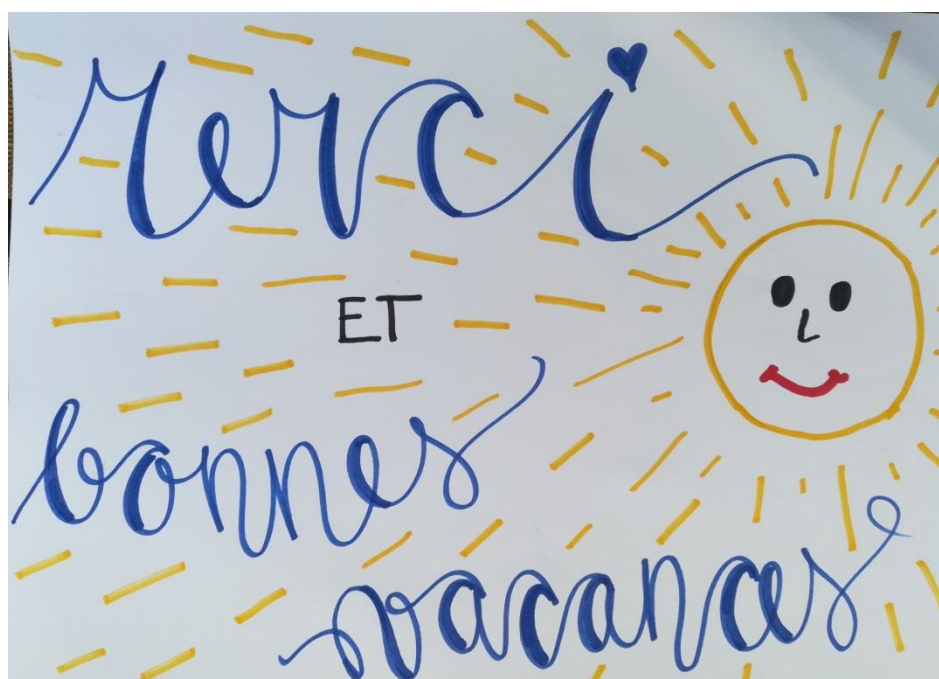 Merci
ET
bonnes
vacances